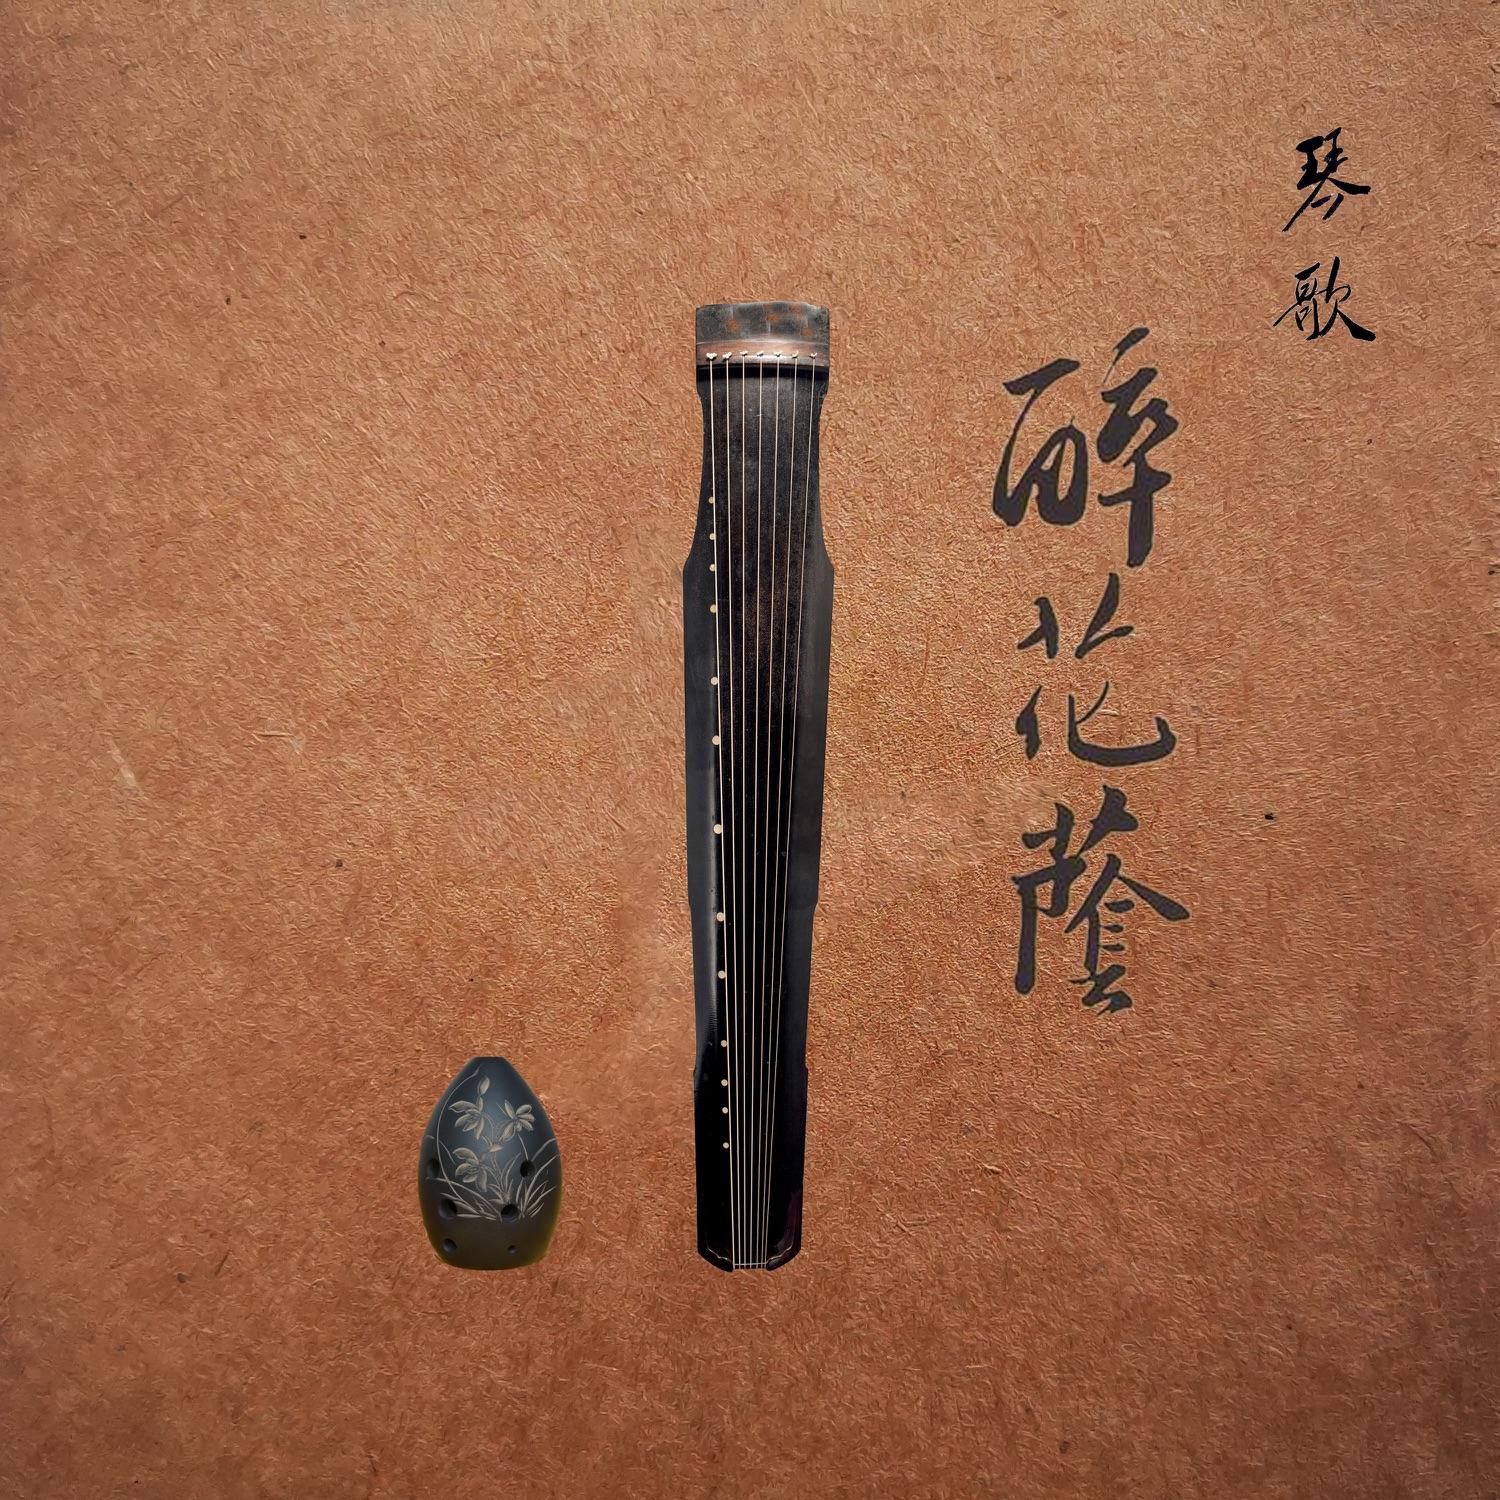 琴歌
醉花蔭